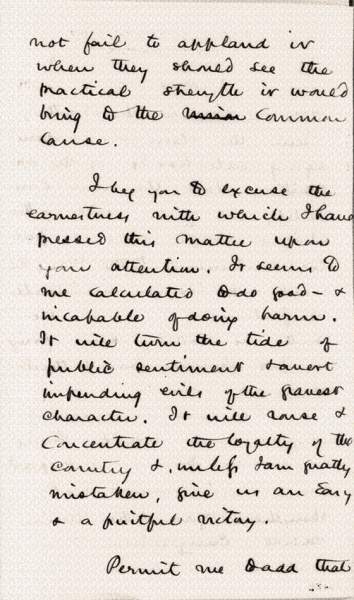 not fail to applaud it
when they should see the
practical strength it would
bring to the union Common
Cause.
I beg you to excuse the
earnestness with which I have
pressed this matter upon
your attention. It seems to
me calculated to do good - &
incapable of doing harm.
It will turn the tide of
public sentiment & avert
impending evils of the gravest
character. It will rouse &
Concentrate the loyalty of the
Country & unless I am greatly
mistaken, give us an Early
& a fruitful victory.
Permit me to add that